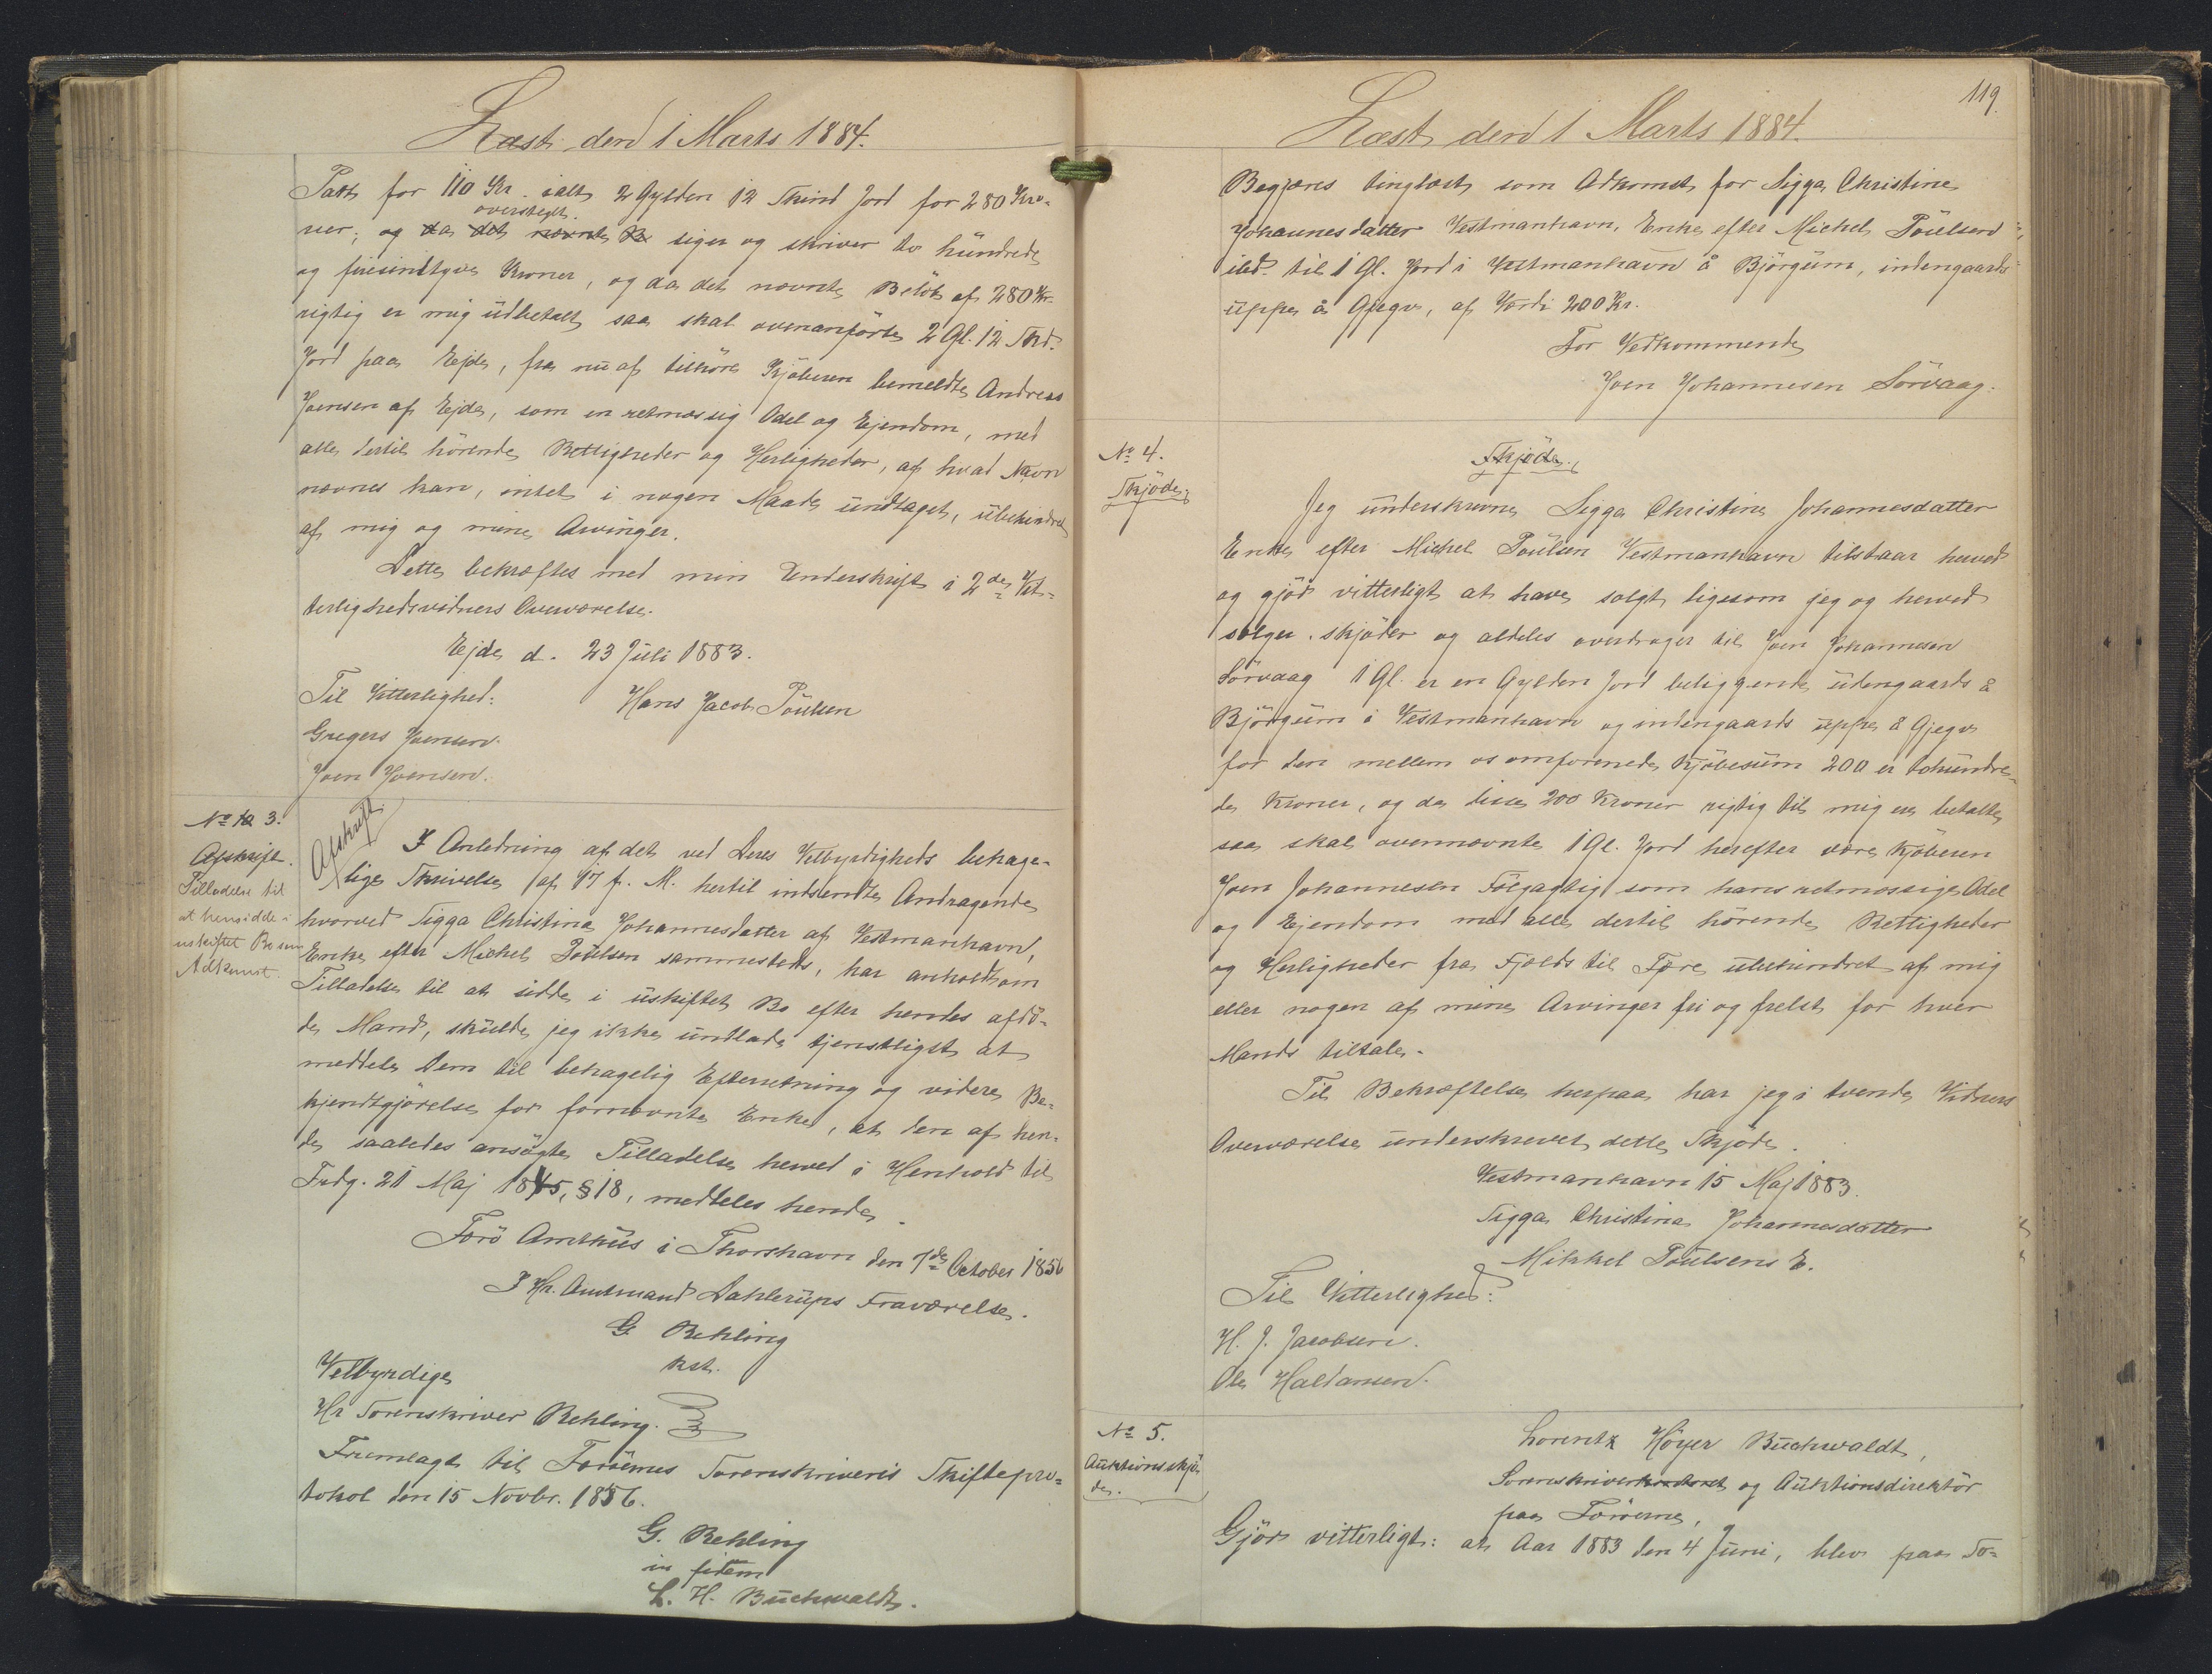 Læst den 1 Marts 1884.
Pætt for 110 Kr. ialt 2 Gylden 12 Skind Jord for 280 Kro-
overstreget.
ner; og da det nævnte Be siger og skriver to hundrede
og firesindtyve Kroner, og da det nævnte Beløb af 280 Kr.
rigtig er mig udbetalt saa skal ovenanførte 2 Gl. 12 Skd.
Jord paa Ejde, fra nu af tilhøre Kjøberen bemeldte Andreas
Joensen af Ejde, som en retmæssig Odel og Ejendom, med
alle dertil hørende Rettigheder og Herligheder, af hvad Navn
nævnes kan, intet i nogen Maade undtaget, ubehindret
af mig og mine Arvinger.
Dette bekræftes med min Underskrift i 2de Vit-
terlighedsvidners Overværelse.
Ejde d. 23 Juli 1883.
Til Vitterlighed: Hans Jacob Poulsen
Gregers Joensen.
Joen Joensen.
No 10 3.
Afskrift.
Tilladelse til
at hensidde i
uskiftet Bo som
Adkomst.
Afskrift
I Anledning af det ved Deres Velbyrdigheds behage-
lige Skrivelse af 17 f. M. hertil indsendte Andragende
hvorved Sigga Christina Johannesdatter af Vestmanhavn,
Enke efter Michel Poulsen sammesteds, har anholdt om
Tilladelse til at sidde i uskiftet Bo efter hendes afdø-
de Mand, skulde jeg ikke undlade tjenstligst at
meddele Dem til behagelig Efterretning og videre Be-
kjendtgjørelse for fornævnte Enke, at den af hen-
de saaledes ansøgte Tilladelse herved i Henhold til
Frdg. 21 Maj 1845, § 18, meddeles hende.
Færø Amthus i Thorshavn den 7de October 1856
I Hr. Amtmand Dahlerups Fraværelse.
G. Rehling
kst.
Velbyrdige
Hr Sorenskriver Rehling.
Fremlagt til Færøernes Sorenskriveris Skiftepro-
tokol den 15 Novbr. 1856.
G. Rehling
in fidem
L. H. Buchwaldt.
119.
Læst den 1 Marts 1884.
Begjæres tinglæst som Adkomst for Sigga Christine
Johannesdatter Vestmanhavn, Enke efter Michel Poulsen
ibd. til 1 Gl. Jord i Vestmanhavn å Bjørgum, indengaards
uppe å Gjegv, af Værdi 200 Kr.
For Vedkommende
Joen Johannesen Sørvaag.
No 4.
Skjøde.
Skjøde.
Jeg underskrevne Sigga Christine Johannesdatter
Enke efter Michel Poulsen Vestmanhavn tilstaar herved
og gjør vitterligt at have solgt ligesom jeg og herved
sælger, skjøder og aldeles overdrager til Joen Johannesen
Sørvaag 1 Gl. er en Gylden Jord beliggende udengaards å
Bjørgum i Vestmanhavn og indengaards uppe å Gjegv
for den mellem os omforenede Kjøbesum 200 er tohundre-
de Kroner, og da disse 200 Kroner rigtig til mig er betalte
saa skal ovennævnte 1 Gl. Jord herefter være Kjøberen
Joen Johannesen følgagtig som hans retmæssige Odel
og Ejendom med alle dertil hørende Rettigheder
og Herligheder fra Fjæld til Fjære ubehindret af mig
eller nogen af mine Arvinger fri og frelst for hver
Mands tiltale.
Til Bekræftelse herpaa har jeg i tvende Vidners
Overværelse underskrevet dette Skjøde.
Vestmanhavn 15 Maj 1883.
Sigga Christina Johannesdatter
Mikkel Poulsens E.
Til Vitterlighed:
H. J. Jacobsen.
Ole Haldansen.
No 5.
Auktionsskjø-
de.
Lorentz Høyer Buchwaldt,
Sorenskriverkontoret og Auktionsdirektør
paa Færøerne,
Gjør vitterligt: at Aar 1883 den 4 Juni, blev paa So-